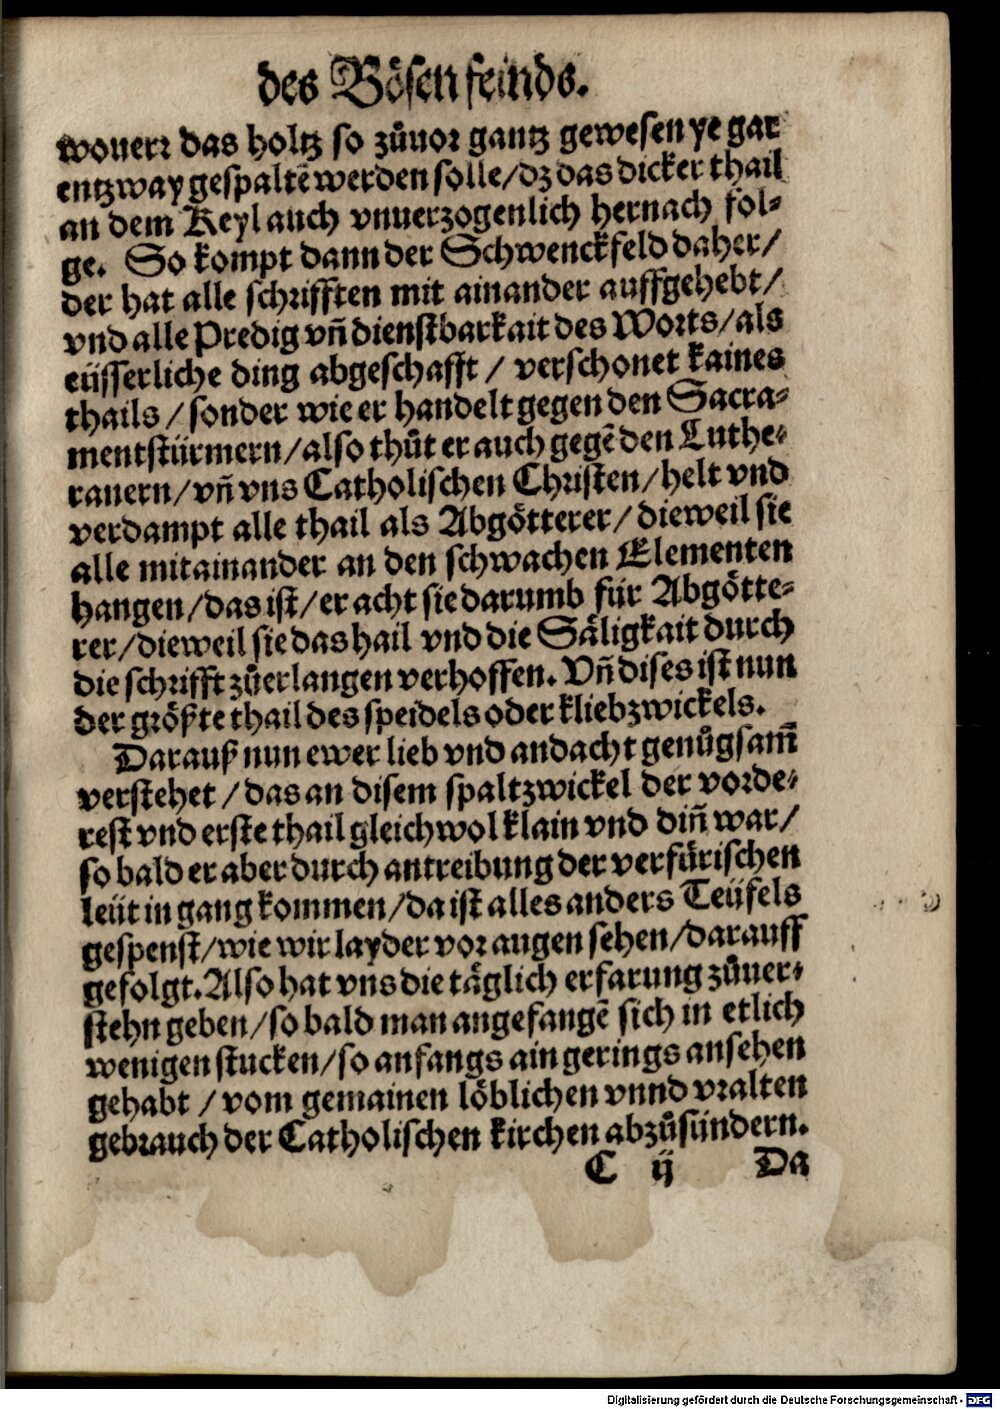 des Bösen feinds.
wouerr das holtz so zůuor gantz gewesen ye gar
entzway gespaltē werden solle/dz das dicker thail
an dem Keyl auch vnuerzogenlich hernach fol⸗
ge. So kompt dann der Schwenckfeld daher/
der hat alle schrifften mit ainander auffgehebt/
vnd alle Predig vñ dienstbarkait des Worts/als
eüsserliche ding abgeschafft / verschonet kaines
thails / sonder wie er handelt gegen den Sacra⸗
mentstürmern/also thůt er auch gegē den Luthe⸗
ranern/vñ vns Catholischen Christen/helt vnd
verdampt alle thail als Abgötterer/ dieweil sie
alle mitainander an den schwachen Elementen
hangen/das ist/er acht sie darumb für Abgötte⸗
rer/dieweil sie das hail vnd die Säligkait durch
die schrifft zůerlangen verhoffen. Vñ dises ist nun
der größte thail des speidels oder kliebzwickels.
Darauß nun ewer lieb vnd andacht genůgsam̄
verstehet / das an disem spaltzwickel der vorde⸗
rest vnd erste thail gleichwol klain vnd diñ war/
so bald er aber durch antreibung der verfürischen
leüt in gang kommen/da ist alles anders Teüfels
gespenst/wie wir layder vor augen sehen/darauff
gefolgt. Also hat vns die täglich erfarung zůuer⸗
stehn geben/so bald man angefangē sich in etlich
wenigen stucken/so anfangs ain gerings ansehen
gehabt / vom gemainen löblichen vnnd vralten
gebrauch der Catholischen kirchen abzůsündern.
C ij Da
Digitalisierung gefördert durch die Deutsche Forschungsgemeinschaft - DFG